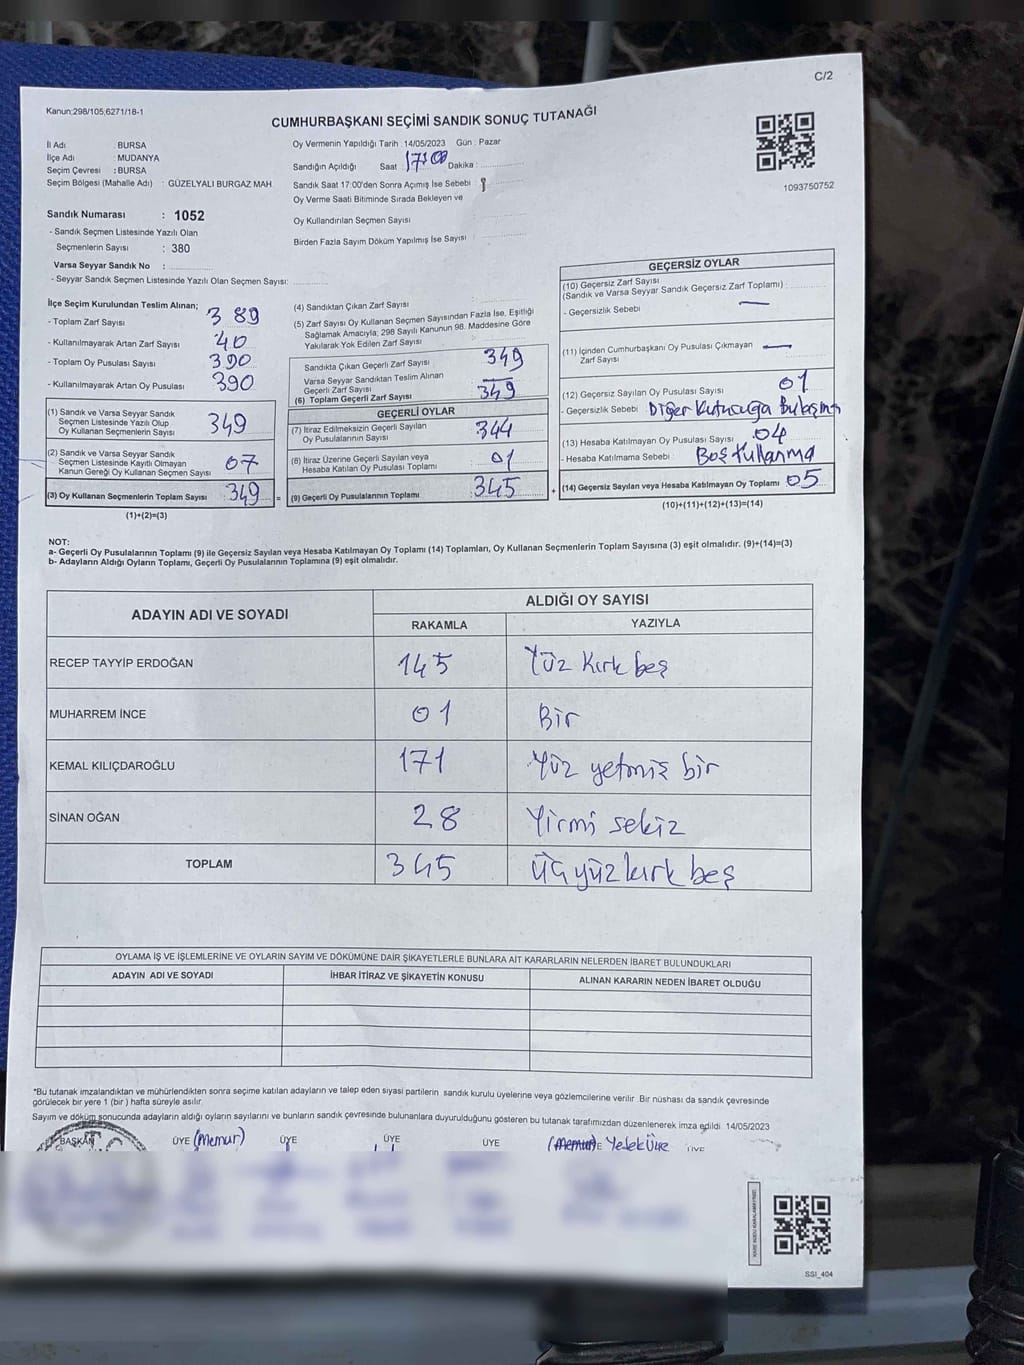 C/2
Kanun:298/105;6271/18-1
CUMHURBAŞKANI SEÇİMİ SANDIK SONUÇ TUTANAĞI
İl Adı : BURSA
İlçe Adı : MUDANYA
Seçim Çevresi : BURSA
Seçim Bölgesi (Mahalle Adı) : GÜZELYALI BURGAZ MAH
Sandık Numarası : 1052
- Sandık Seçmen Listesinde Yazılı Olan
Seçmenlerin Sayısı : 380
Varsa Seyyar Sandık No :
- Seyyar Sandık Seçmen Listesinde Yazılı Olan Seçmen Sayısı:
Oy Vermenin Yapıldığı Tarih : 14/05/2023 Gün : Pazar
Sandığın Açıldığı Saat 17:00 Dakika :
Sandık Saat 17:00'den Sonra Açımış İse Sebebi
Oy Verme Saati Bitiminde Sırada Bekleyen ve
Oy Kullandırılan Seçmen Sayısı
Birden Fazla Sayım Döküm Yapılmış İse Sayısı
1093750752
İlçe Seçim Kurulundan Teslim Alınan;
- Toplam Zarf Sayısı 389
- Kullanılmayarak Artan Zarf Sayısı 40
- Toplam Oy Pusulası Sayısı 390
- Kullanılmayarak Artan Oy Pusulası 390
(1) Sandık ve Varsa Seyyar Sandık
Seçmen Listesinde Yazılı Olup
Oy Kullanan Seçmenlerin Sayısı 349
(2) Sandık ve Varsa Seyyar Sandık
Seçmen Listesinde Kayıtlı Olmayan
Kanun Gereği Oy Kullanan Seçmen Sayısı 07
(3) Oy Kullanan Seçmenlerin Toplam Sayısı 349 =
(1)+(2)=(3)
(4) Sandıktan Çıkan Zarf Sayısı
(5) Zarf Sayısı Oy Kullanan Seçmen Sayısından Fazla İse, Eşitliği
Sağlamak Amacıyla; 298 Sayılı Kanunun 98. Maddesine Göre
Yakılarak Yok Edilen Zarf Sayısı
Sandıkta Çıkan Geçerli Zarf Sayısı 349
Varsa Seyyar Sandıktan Teslim Alınan
Geçerli Zarf Sayısı —
(6) Toplam Geçerli Zarf Sayısı 349
GEÇERLİ OYLAR
(7) İtiraz Edilmeksizin Geçerli Sayılan
Oy Pusulalarının Sayısı 344
(8) İtiraz Üzerine Geçerli Sayılan veya
Hesaba Katılan Oy Pusulası Toplamı 01
(9) Geçerli Oy Pusulalarının Toplamı 345 +
GEÇERSİZ OYLAR
(10) Geçersiz Zarf Sayısı
(Sandık ve Varsa Seyyar Sandık Geçersiz Zarf Toplamı) :
- Geçersizlik Sebebi —
(11) İçinden Cumhurbaşkanı Oy Pusulası Çıkmayan —
Zarf Sayısı
(12) Geçersiz Sayılan Oy Pusulası Sayısı 01
- Geçersizlik Sebebi : Diğer Kutucuğa Bulaşmış
(13) Hesaba Katılmayan Oy Pusulası Sayısı 04
- Hesaba Katılmama Sebebi : Boş Kullanma
(14) Geçersiz Sayılan veya Hesaba Katılmayan Oy Toplamı 05
(10)+(11)+(12)+(13)=(14)
NOT:
a- Geçerli Oy Pusulalarının Toplamı (9) ile Geçersiz Sayılan veya Hesaba Katılmayan Oy Toplamı (14) Toplamları, Oy Kullanan Seçmenlerin Toplam Sayısına (3) eşit olmalıdır. (9)+(14)=(3)
b- Adayların Aldığı Oyların Toplamı, Geçerli Oy Pusulalarının Toplamına (9) eşit olmalıdır.
ADAYIN ADI VE SOYADI ALDIĞI OY SAYISI
RAKAMLA YAZIYLA
RECEP TAYYİP ERDOĞAN 145 Yüz Kırk beş
MUHARREM İNCE 01 Bir
KEMAL KILIÇDAROĞLU 171 Yüz yetmiş bir
SİNAN OĞAN 28 Yirmi sekiz
TOPLAM 345 Üç yüz kırk beş
OYLAMA İŞ VE İŞLEMLERİNE VE OYLARIN SAYIM VE DÖKÜMÜNE DAİR ŞİKAYETLERLE BUNLARA AİT KARARLARIN NELERDEN İBARET BULUNDUKLARI
ADAYIN ADI VE SOYADI İHBAR İTİRAZ VE ŞİKAYETİN KONUSU ALINAN KARARIN NEDEN İBARET OLDUĞU
*Bu tutanak imzalandıktan ve mühürlendikten sonra seçime katılan adayların ve talep eden siyasi partilerin sandık kurulu üyelerine veya gözlemcilerine verilir. Bir nüshası da sandık çevresinde
görülecek bir yere 1 (bir ) hafta süreyle asılır.
Sayım ve döküm sonucunda adayların aldığı oyların sayılarını ve bunların sandık çevresinde bulunanlara duyurulduğunu gösteren bu tutanak tarafımızdan düzenlenerek imza edildi. 14/05/2023
BAŞKAN ÜYE (Memur) ÜYE ÜYE ÜYE (Memur) Yedek Üye ÜYE
SSI_404